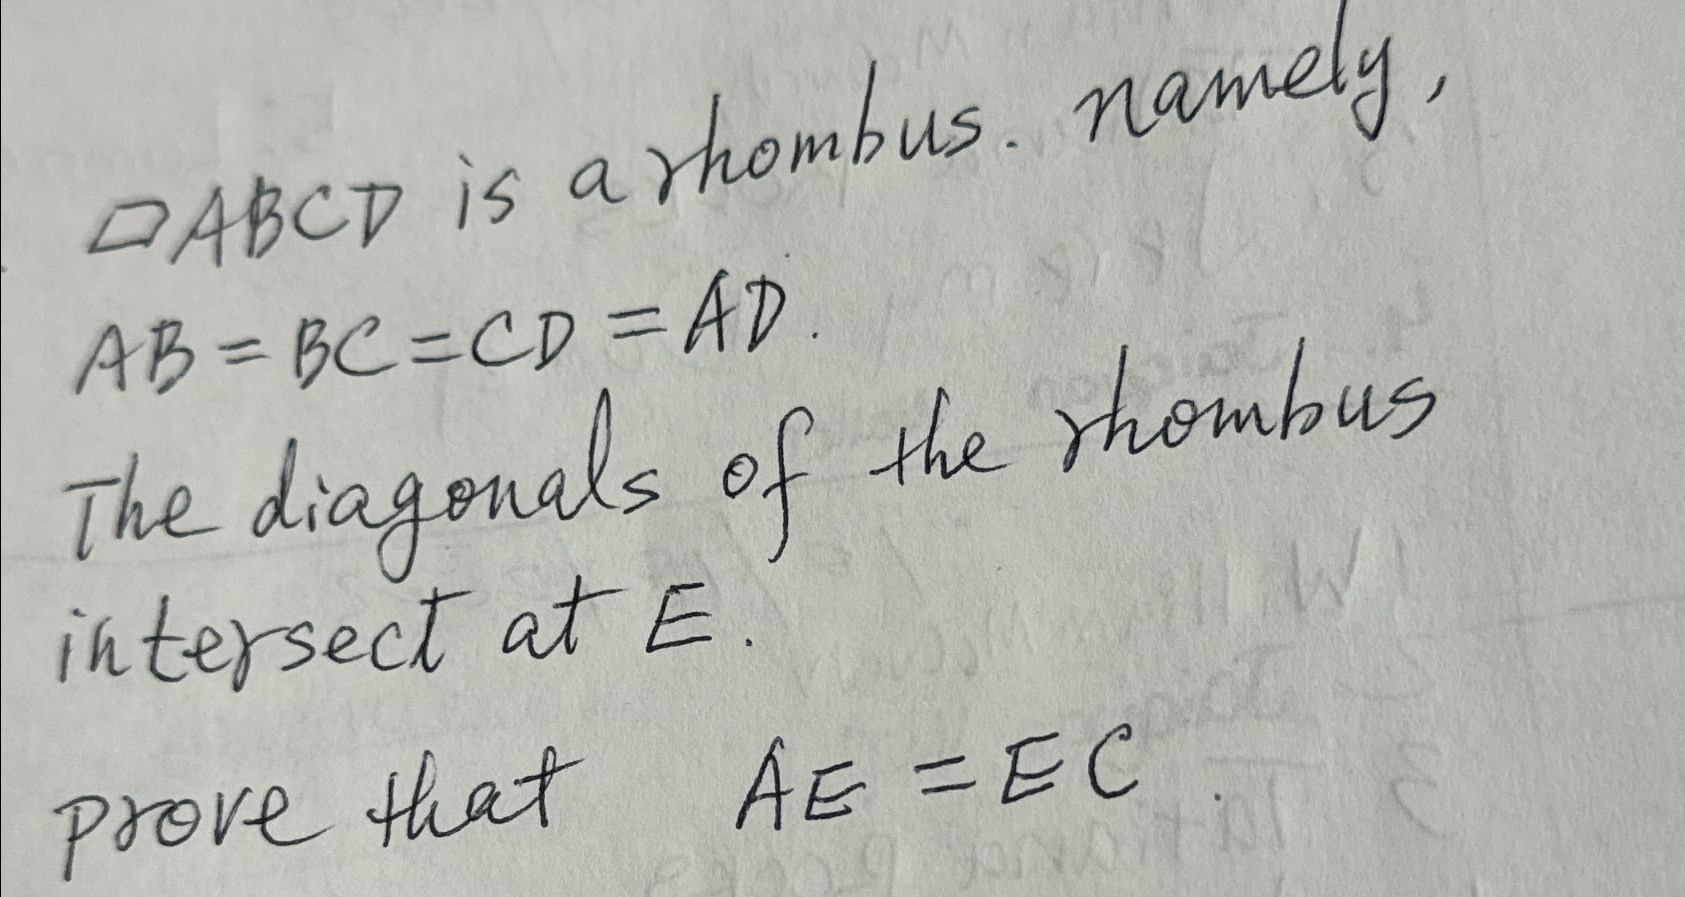 ▱ABCD is a rhombus. namely,
AB = BC = CD = AD.
The diagonals of the rhombus
intersect at E.
prove that AE = EC.